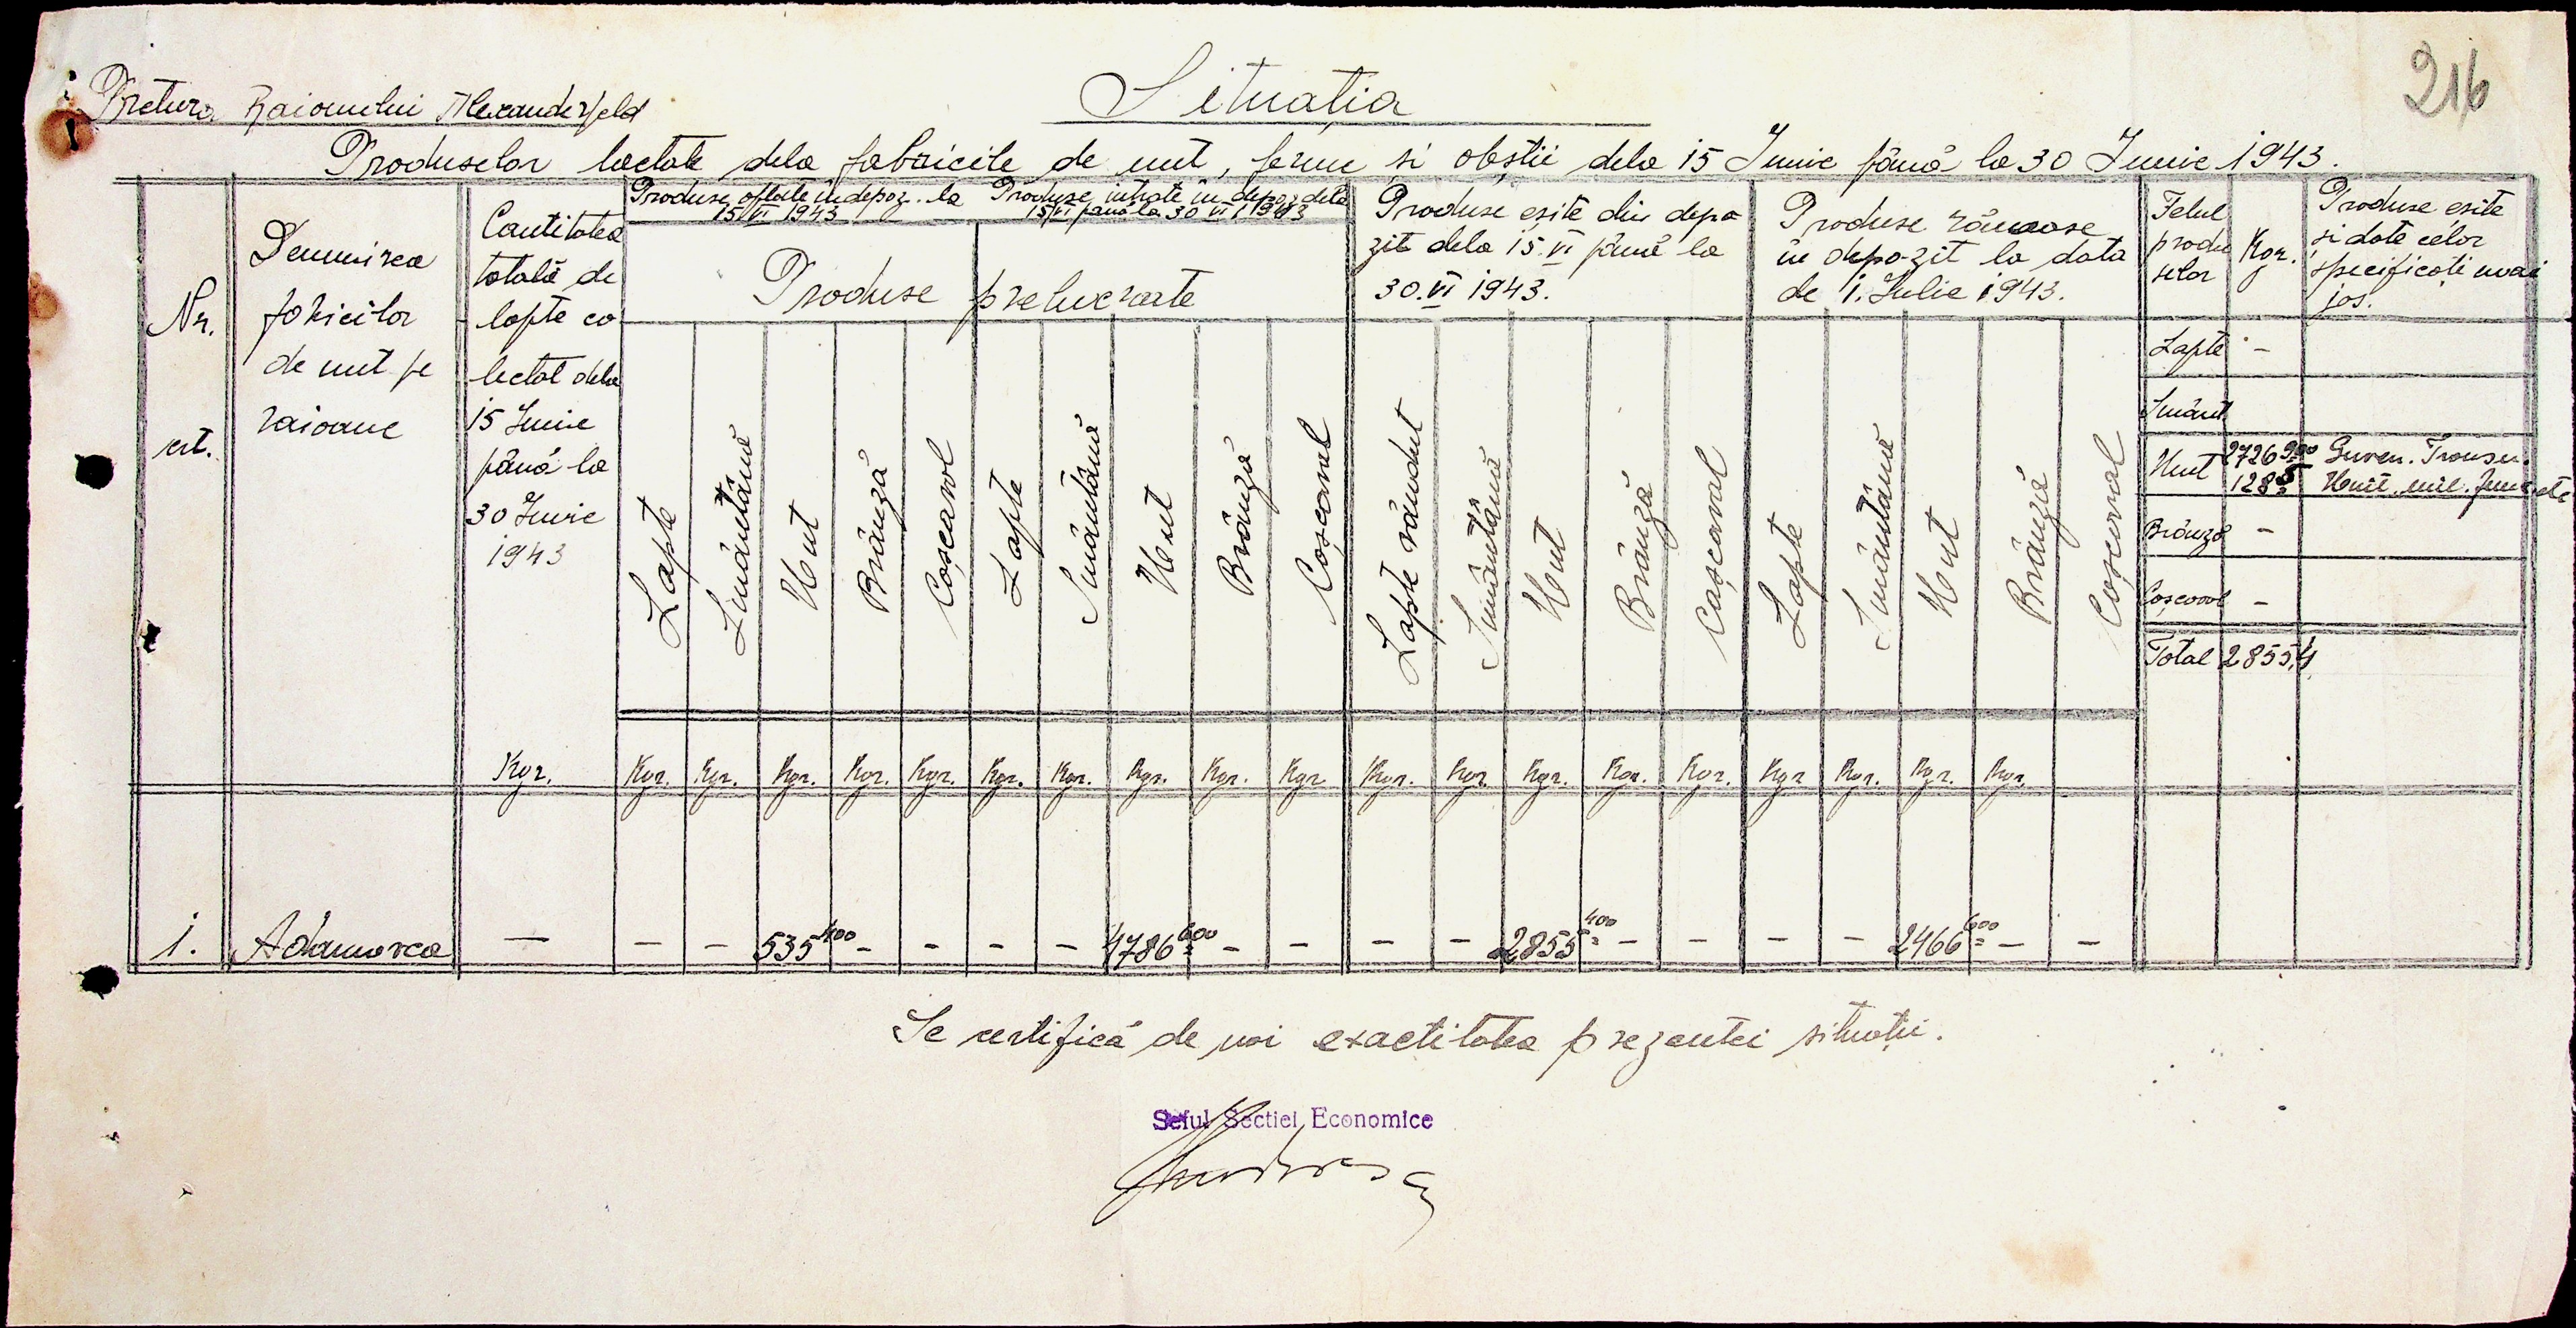 216
Situația
Pretura Raionului Alexanderfeld
Produselor lactate dela fabricile de unt, ferme si obștii dela 15 Iunie până la 30 Iunie 1943.
Nr.
crt.
Denumirea
fabricilor
de unt pe
raioane
Cantitatea
totală de
lapte co
lectat dela
15 Iunie
până la
30 Iunie
1943
Produse aflate in depoz. la
15/VI 1943
Produse intrate in depoz dela
15/VI până la 30 VI 1943
Produse prelucrate
Produse eșite din depo
zit dela 15.VI până la
30.VI 1943.
Produse rămase
in depozit la data
de 1. Iulie 1943.
Felul
produ
selor
Kgr.
Produse esite
si date celor
specificați mai
jos.
Lapte Smântână Unt Brânză Cașcaval Lapte Smântână Unt Brânză Cașcaval Lapte smăndut Smântână Unt Brânză Cașcaval Lapte Smântână Unt Brânză Cașcaval
Lapte -
Smânt
Unt 2726 900 Guvern. Transn.
128 5 Unit. mil.
Brânză -
Cașcaval -
Total 2855,4
Kgr. Kgr. Kgr. Kgr. Kgr. Kgr. Kgr. Kgr. Kgr. Kgr. Kgr Kgr. Kgr. Kgr. Kgr. Kgr. Kgr Kgr. Kgr. Kgr.
1. Adamovca - - - 535 400 - - - - 4786 600 - - - - 2855 400 - - - - 2466 600 - -
Se certifică de noi exactitatea prezentei situații.
Seful Sectiei Economice